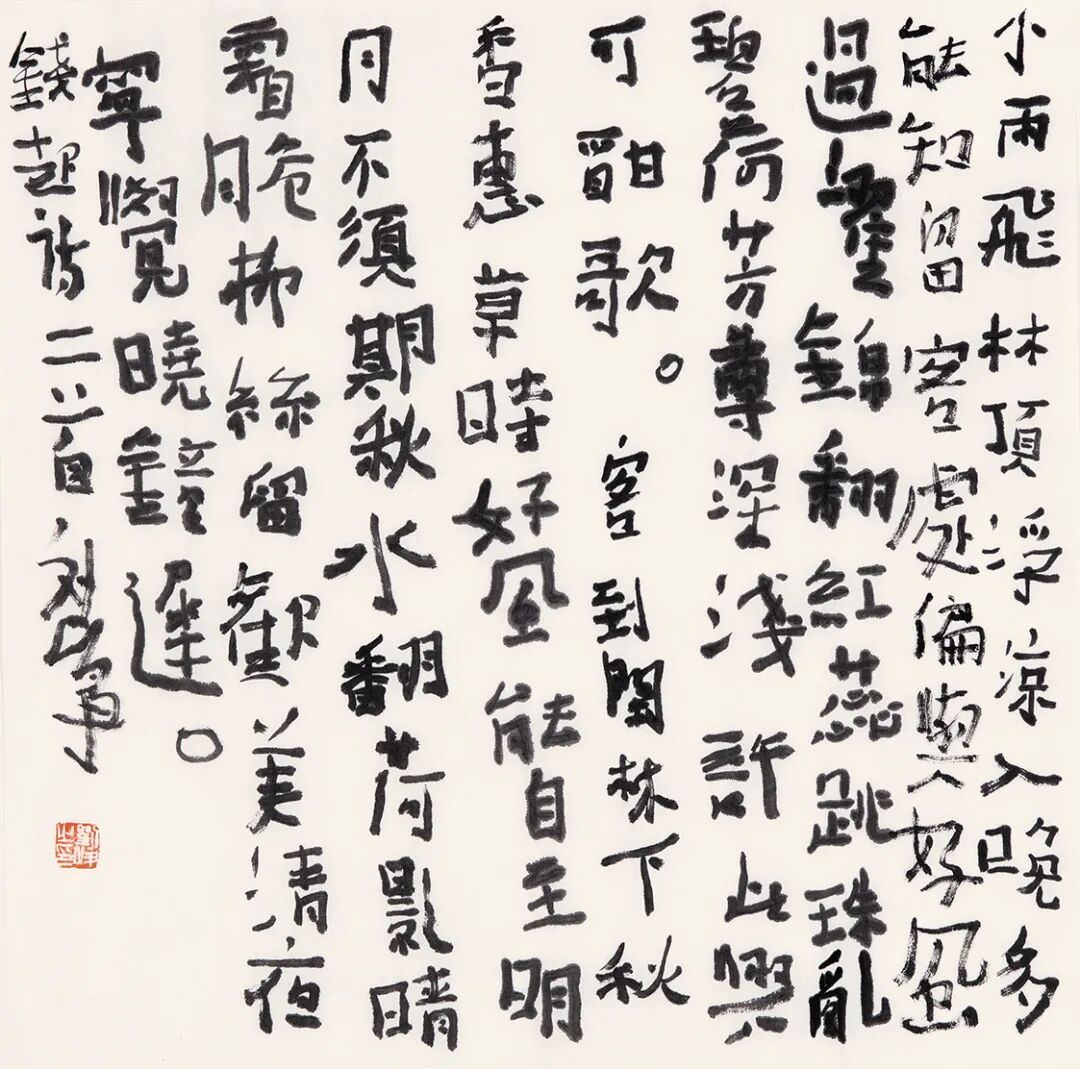 小雨飛林頂浮涼入晚多
能知留客處偏與好風
過濯錦翻紅蕊跳珠亂
碧荷芳尊深淺許此興
可酣歌。客到林下秋
香惠草時好風能自至明
月不須期秋水翻荷影晴
霜脆拂絲留歡美清夜
寧覺曉鐘遲。
錢起詩二首